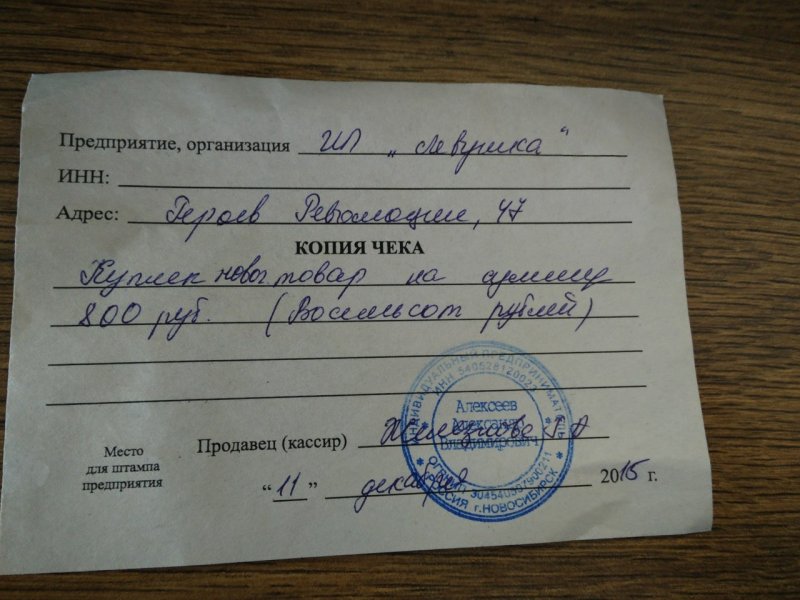 Предприятие, организация ИП „Левушка“
ИНН:
Адрес: Героев Революции, 47
КОПИЯ ЧЕКА
Куплен новый товар на сумму
800 руб. (Восемьсот рублей)
Место
для штампа
предприятия
Продавец (кассир)
“11” декабря 2015 г.
ИНДИВИДУАЛЬНЫЙ ПРЕДПРИНИМАТЕЛЬ
Алексеев
Александр
Владимирович
РОССИЯ г.НОВОСИБИРСК